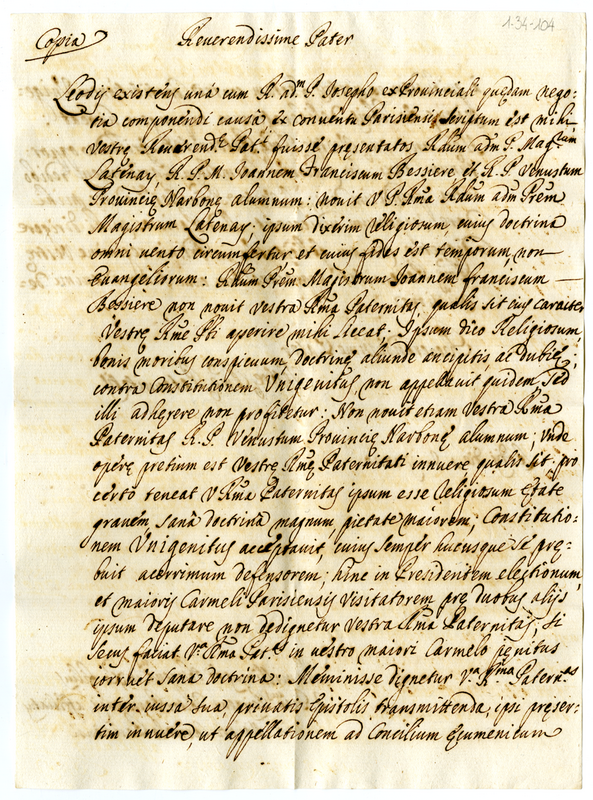 1-34-104
Copia Reverendissime Pater
Leodij existens una cum R. adm P. Josepho exProvinciali quędam nego-
tia componendi causa ex conventu Parisiensi scriptum est mihi
vestrę Reverendę Patti fuisse pręsentatos Rdum adm P. Magrum
Latenay, R. P. M. Joannem Franciscum Bessiere et R. P. Venustum
Provincię Narbonę alumnum: novit V P. Rma Rdum adm Prem
Magistrum Latenay, ipsum dixerim religiosum, cuius doctrina
omni vento circumfertur et cuius fides est temporum non
Evangeliorum: Rdum Prem Magistrum Joannem franciscum
Bessiere non novit Vestra Rma Paternitas, qualis sit eius caracter
Vestrę Rmę Pti asserire mihi liceat. Ipsum dico Religiosum
bonis moribus conspicuum, doctrinę aliunde ancipitis ac dubię;
contra Constitutionem Unigenitus non appellavit quidem, sed
illi adhęrere non profitetur: Non novit etiam Vestra Rma
Paternitas R. P. Vinustum Provincię Narbonę alumnum; unde
operę pretium est Vestrę Rmę Paternitati innuere qualis sit; pro
certo teneat V Rma Paternitas ipsum esse religiosum ętate
gravem, sana doctrina magnum, pietate maiorem, Constitutio-
nem Unigenitus acceptavit, cuius semper hucusque se prę-
buit acerrimum defensorem; hinc in Pręsidentem electionum
et maioris Carmeli Parisiensis visitatorem prę duobus alijs
ipsum deputare non dedignetur Vestra Rma Paternitas, si
secus faciat Va Rma Patas in vestro maiori Carmelo penitus
corruit sana doctrina: Meminisse dignetur Va Rma Paternas
inter iussa sua privatis Epistolis transmittenda, ipsi pręser-
tim innuere, ut appellationem ad Concilium Ęcumenicum